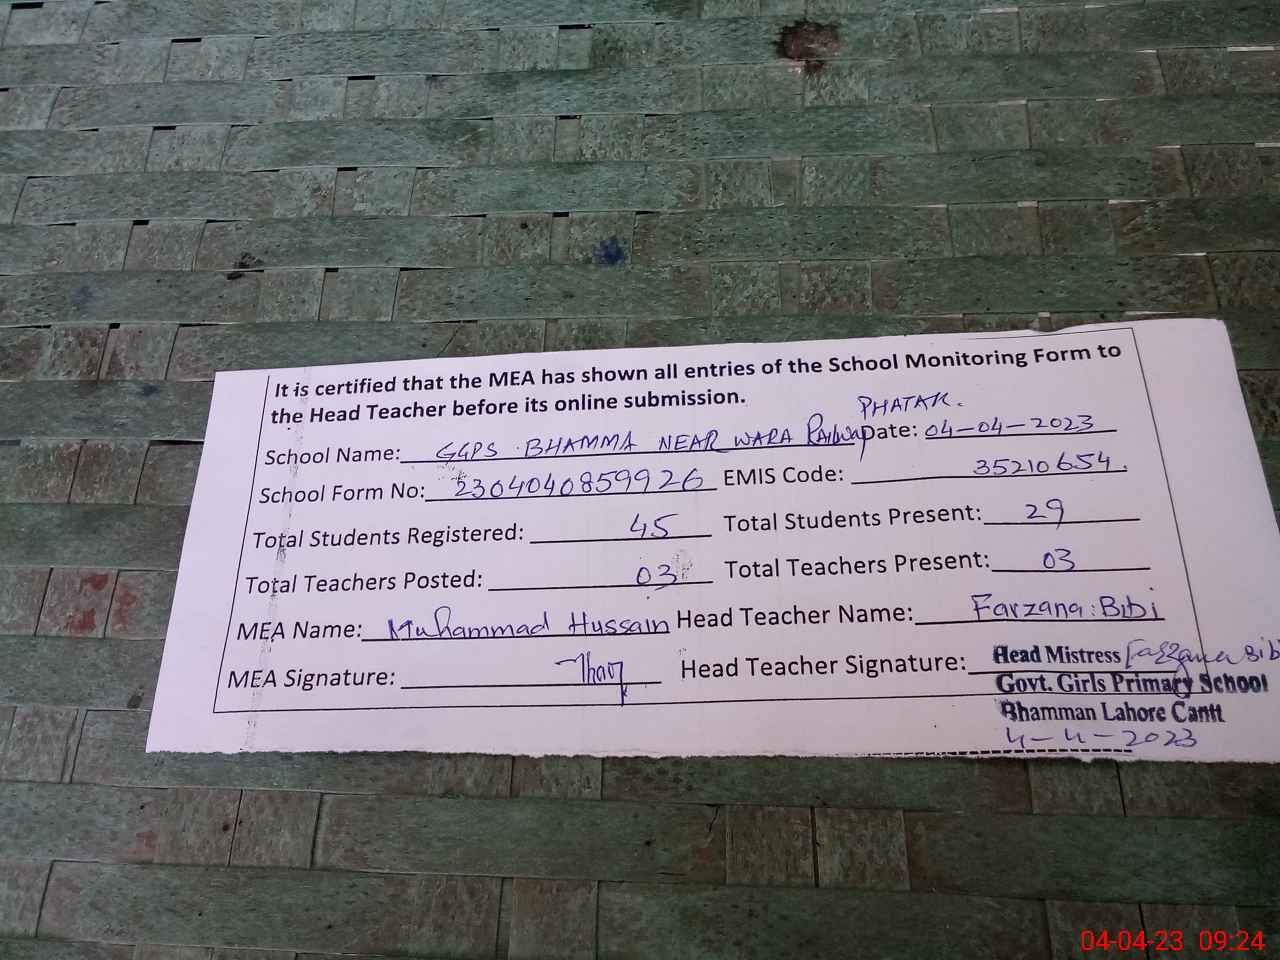 It is certified that the MEA has shown all entries of the School Monitoring Form to
the Head Teacher before its online submission.
PHATAK.
School Name: GGPS . BHAMMA NEAR WARA Railway Date: 04-04-2023
School Form No: 2304040859926 EMIS Code: 35210654.
Total Students Registered: 45 Total Students Present: 29
Total Teachers Posted: 03 Total Teachers Present: 03
MEA Name: Muhammad Hussain Head Teacher Name: Farzana Bibi
MEA Signature: Head Teacher Signature: Head Mistress Farzana Bib
Govt. Girls Primary School
Bhamman Lahore Cantt
4-4-2023
04-04-23 09:24